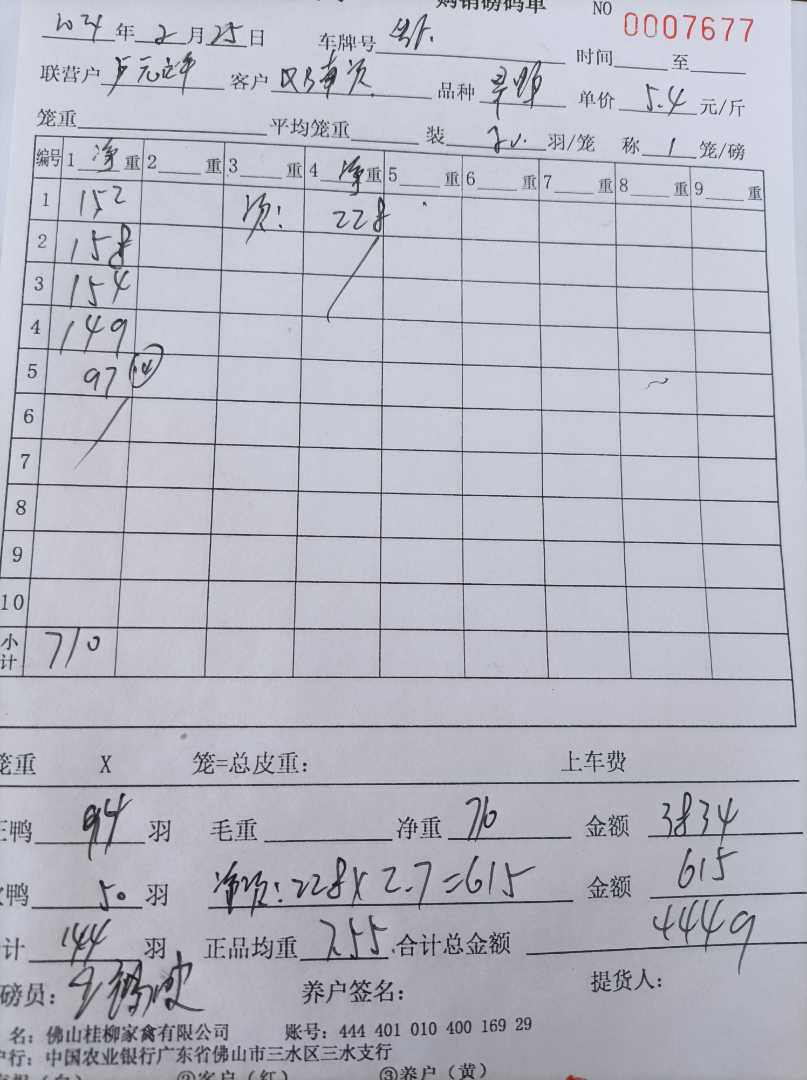 购销磅码单 NO 0007677
2024年2月25日 车牌号 时间 至
联营户 客户 品种 单价 5.4 元/斤
笼重 平均笼重 装 20 羽/笼 称 1 笼/磅
编号 1 净 重 2 重 3 重 4 净 重 5 重 6 重 7 重 8 重 9 重
1 152 次: 228
2 158
3 154
4 149
5 97 14
6
7
8
9
10
小计 710
笼重 X 笼=总皮重: 上车费
正鸭 94 羽 毛重 净重 710 金额 3834
次鸭 50 羽 净次:228X2.7=615 金额 615
计 144 羽 正品均重 7.55 合计总金额 4449
磅员: 养户签名: 提货人:
名: 佛山桂柳家禽有限公司 账号: 444 401 010 400 169 29
户行: 中国农业银行广东省佛山市三水区三水支行
②客户(红) ③养户(黄)